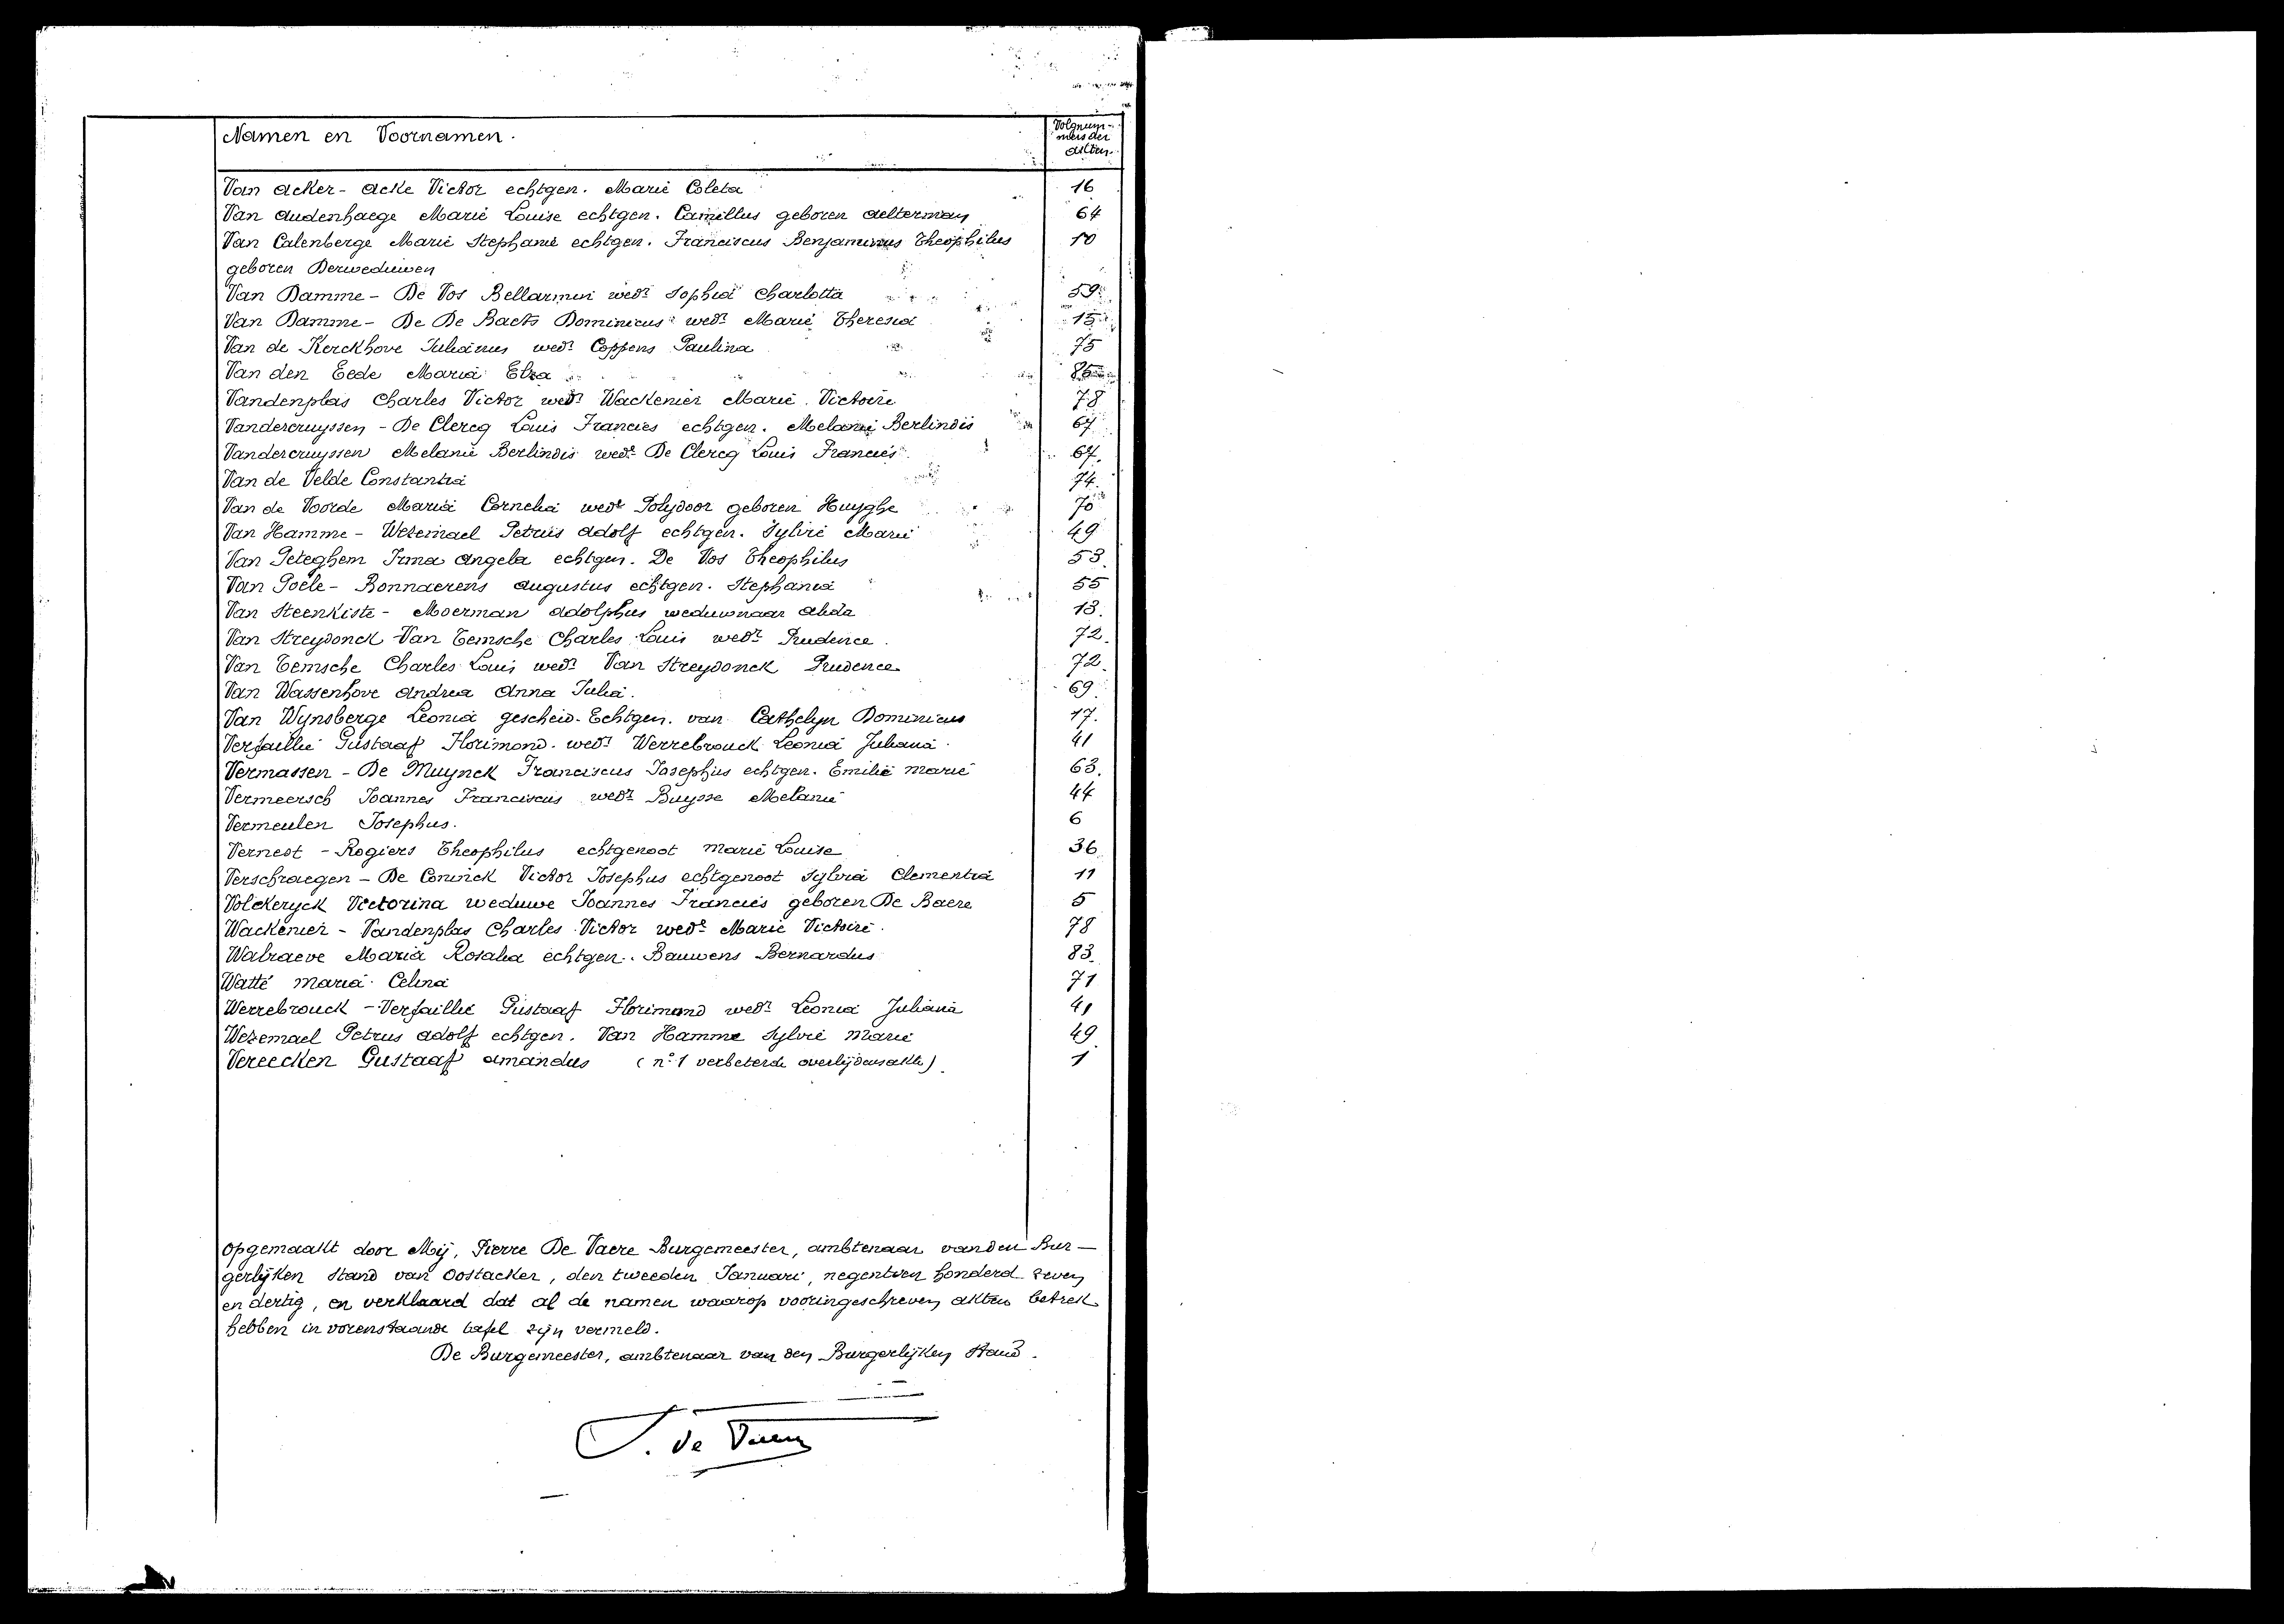 Namen en Voornamen.
Volgnum-
mers der
akten.
Van Acker - Acke Victor echtgen. Marie Coleta 16
Van Audenhaege Marie Louise echtgen. Camillus geboren Aelterman 64
Van Calenberge Marie Stephanie echtgen. Franciscus Benjaminus Theophilus 10
geboren Derweduwen
Van Damme - De Vos Bellarmin wedr Sophia Charlotta 59
Van Damme - De De Baets Dominicus wedr Marie Theresia 15
Van de Kerckhove Julianus wedr Coppens Paulina 75
Van den Eede Maria Elza
Vandenplas Charles Victor wedr Wackenier Marie Victoire 78
Vandercruyssen - De Clercq Louis Francies echtgen. Melanie Berlindis 67
Vandercruyssen Melanie Berlindis wede De Clercq Louis Francies 67.
Van de Velde Constantia 74.
Van de Voorde Maria Cornelia wede Polydoor geboren Huyghe 70
Van Hamme - Wezemael Petrus Adolf echtgen. Sylvie Marie 49
Van Peteghem Irma Angela echtgen. De Vos Theophilus 53.
Van Poele - Bonnaerens Augustus echtgen. Stephania 55
Van Steenkiste - Moerman Adolphus weduwnaar Alida 13.
Van Streydonck Van Temsche Charles Louis wedr Prudence. 72.
Van Temsche Charles Louis wedr Van Streydonck Prudence 72.
Van Wassenhove Andrea Anna Julia. 69.
Van Wynsberge Leonia gescheid. Echtgen. van Cathelyn Dominicus 17.
Verfaillie Gustaaf Florimond. wedr Werrebrouck Leonia Juliana. 41
Vermassen - De Muynck Franciscus Josephus echtgen. Emilie Marie 63.
Vermeersch Joannes Franciscus wedr Buysse Melanie 44
Vermeulen Josephus. 6
Vernest - Rogiers Theophilus echtgenoot Marie Louise 36.
Verschraegen - De Coninck Victor Josephus echtgenoot Sylvia Clementia 11
Volckeryck Victorina weduwe Joannes Francies geboren De Baere 5
Wackenier - Vandenplas Charles Victor wede Marie Victoire. 78
Walraeve Maria Rosalia echtgen. Bauwens Bernardus 83.
Watté Maria Celina 71
Werrebrouck - Verfaillie Gustaaf Florimond wedr Leonia Juliana 41
Wezemael Petrus Adolf echtgen. Van Hamme Sylvie Marie 49.
Vereecken Gustaaf Amandus (no 1 verbeterde overlijdensakte). 1
Opgemaakt door Mij, Pierre De Vaere Burgemeester, ambtenaar van den Bur-
gerlijken Stand van Oostacker, den tweeden Januari, negentien honderd zeven
en dertig, en verklaard dat al de namen waarop vooringeschreven akten betrek
hebben in vorenstaande tafel zijn vermeld.
De Burgemeester, ambtenaar van den Burgerlijken Stand.
P. De Vaere